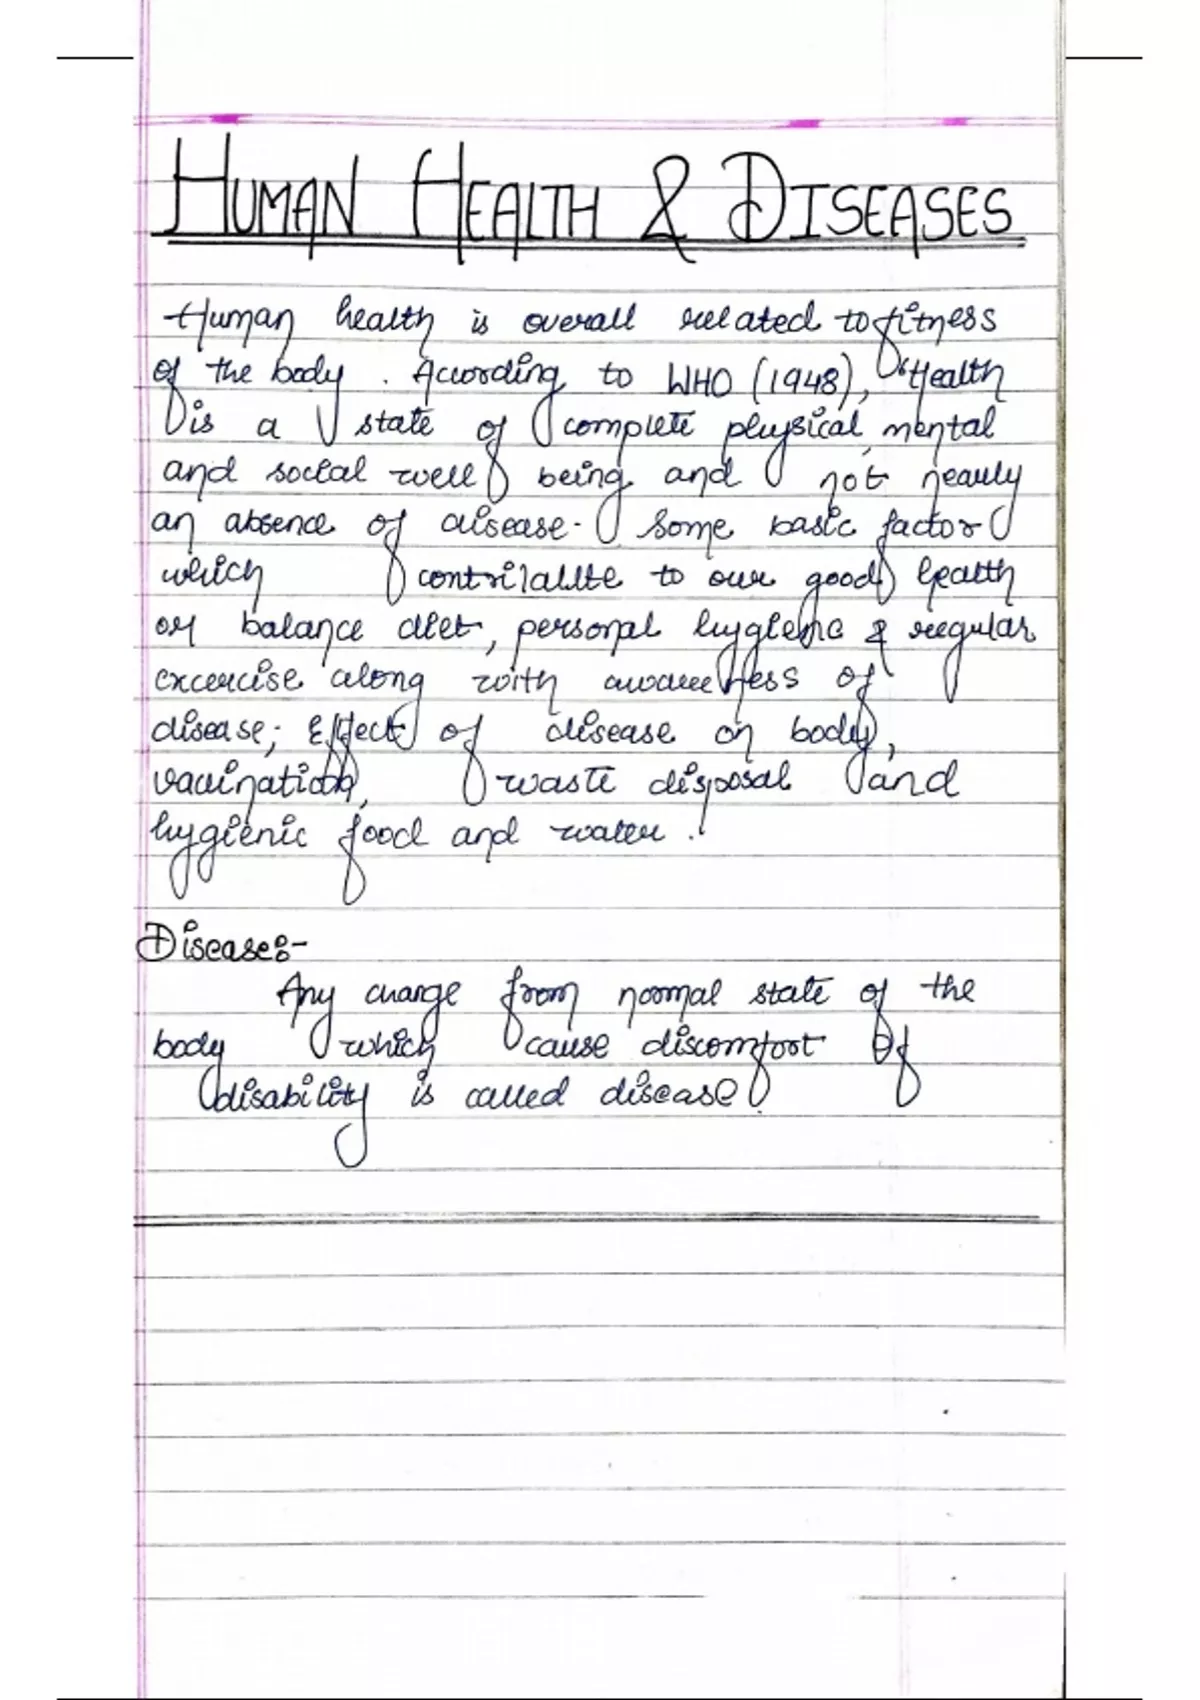 HUMAN HEALTH & DISEASES
Human health is overall related to fitness
of the body. According to WHO (1948), "Health
is a state of complete physical, mental
and social well being and not nearly
an absence of disease. Some basic factor
which contribute to our good health
or balance diet, personal hygiene & regular
excercise along with awareness of
disease; Effect of disease on body,
vaccination, waste disposal and
hygienic food and water.
Disease:-
Any change from normal state of the
body which cause discomfort Of
disability is called disease.